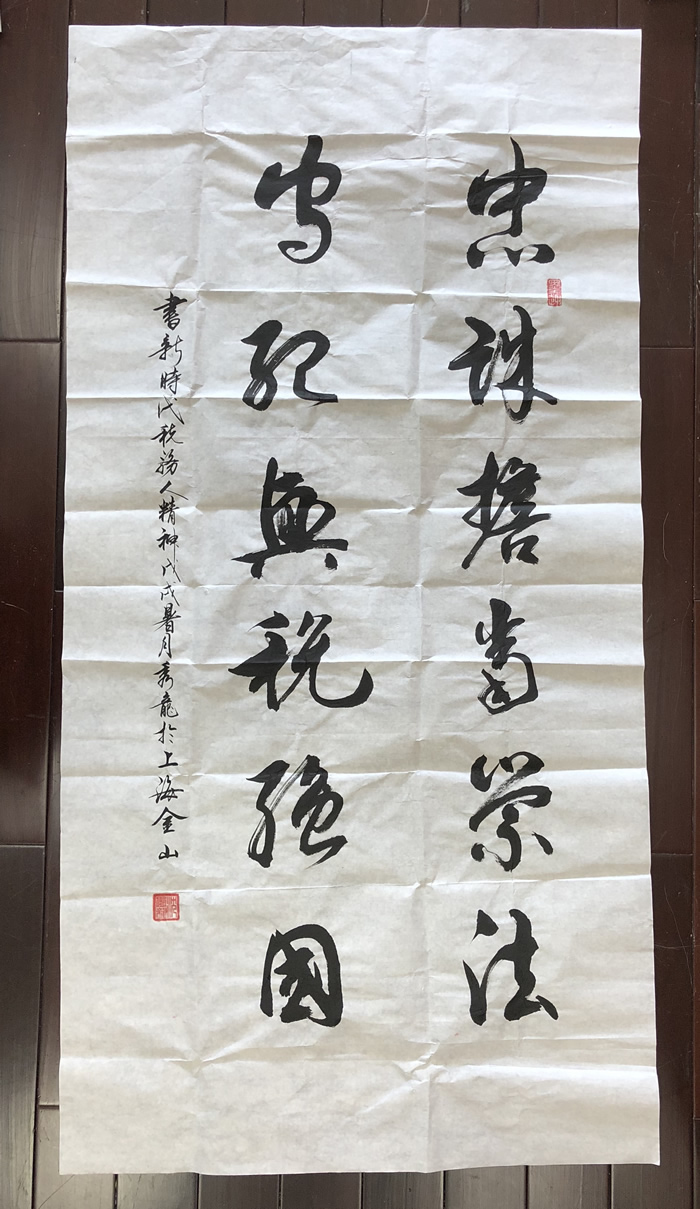 忠誠擔當崇法
守紀興税強國
書新時代税務人精神戊戌暑月秀龍於上海金山